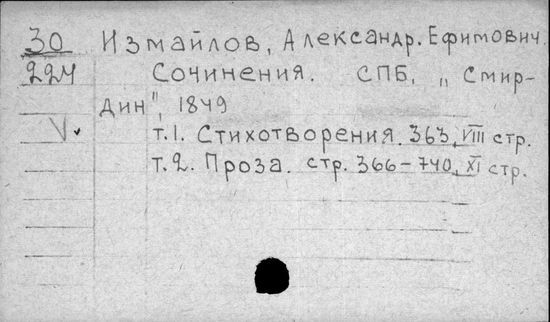 30 Измайлов, Александр. Ефимович.
224 Сочинения. СПБ, „Смир-
дин", 1849
V. т.1. Стихотворения. 363, VIII стр.
т.2. Проза. стр. 366-740, XI стр.